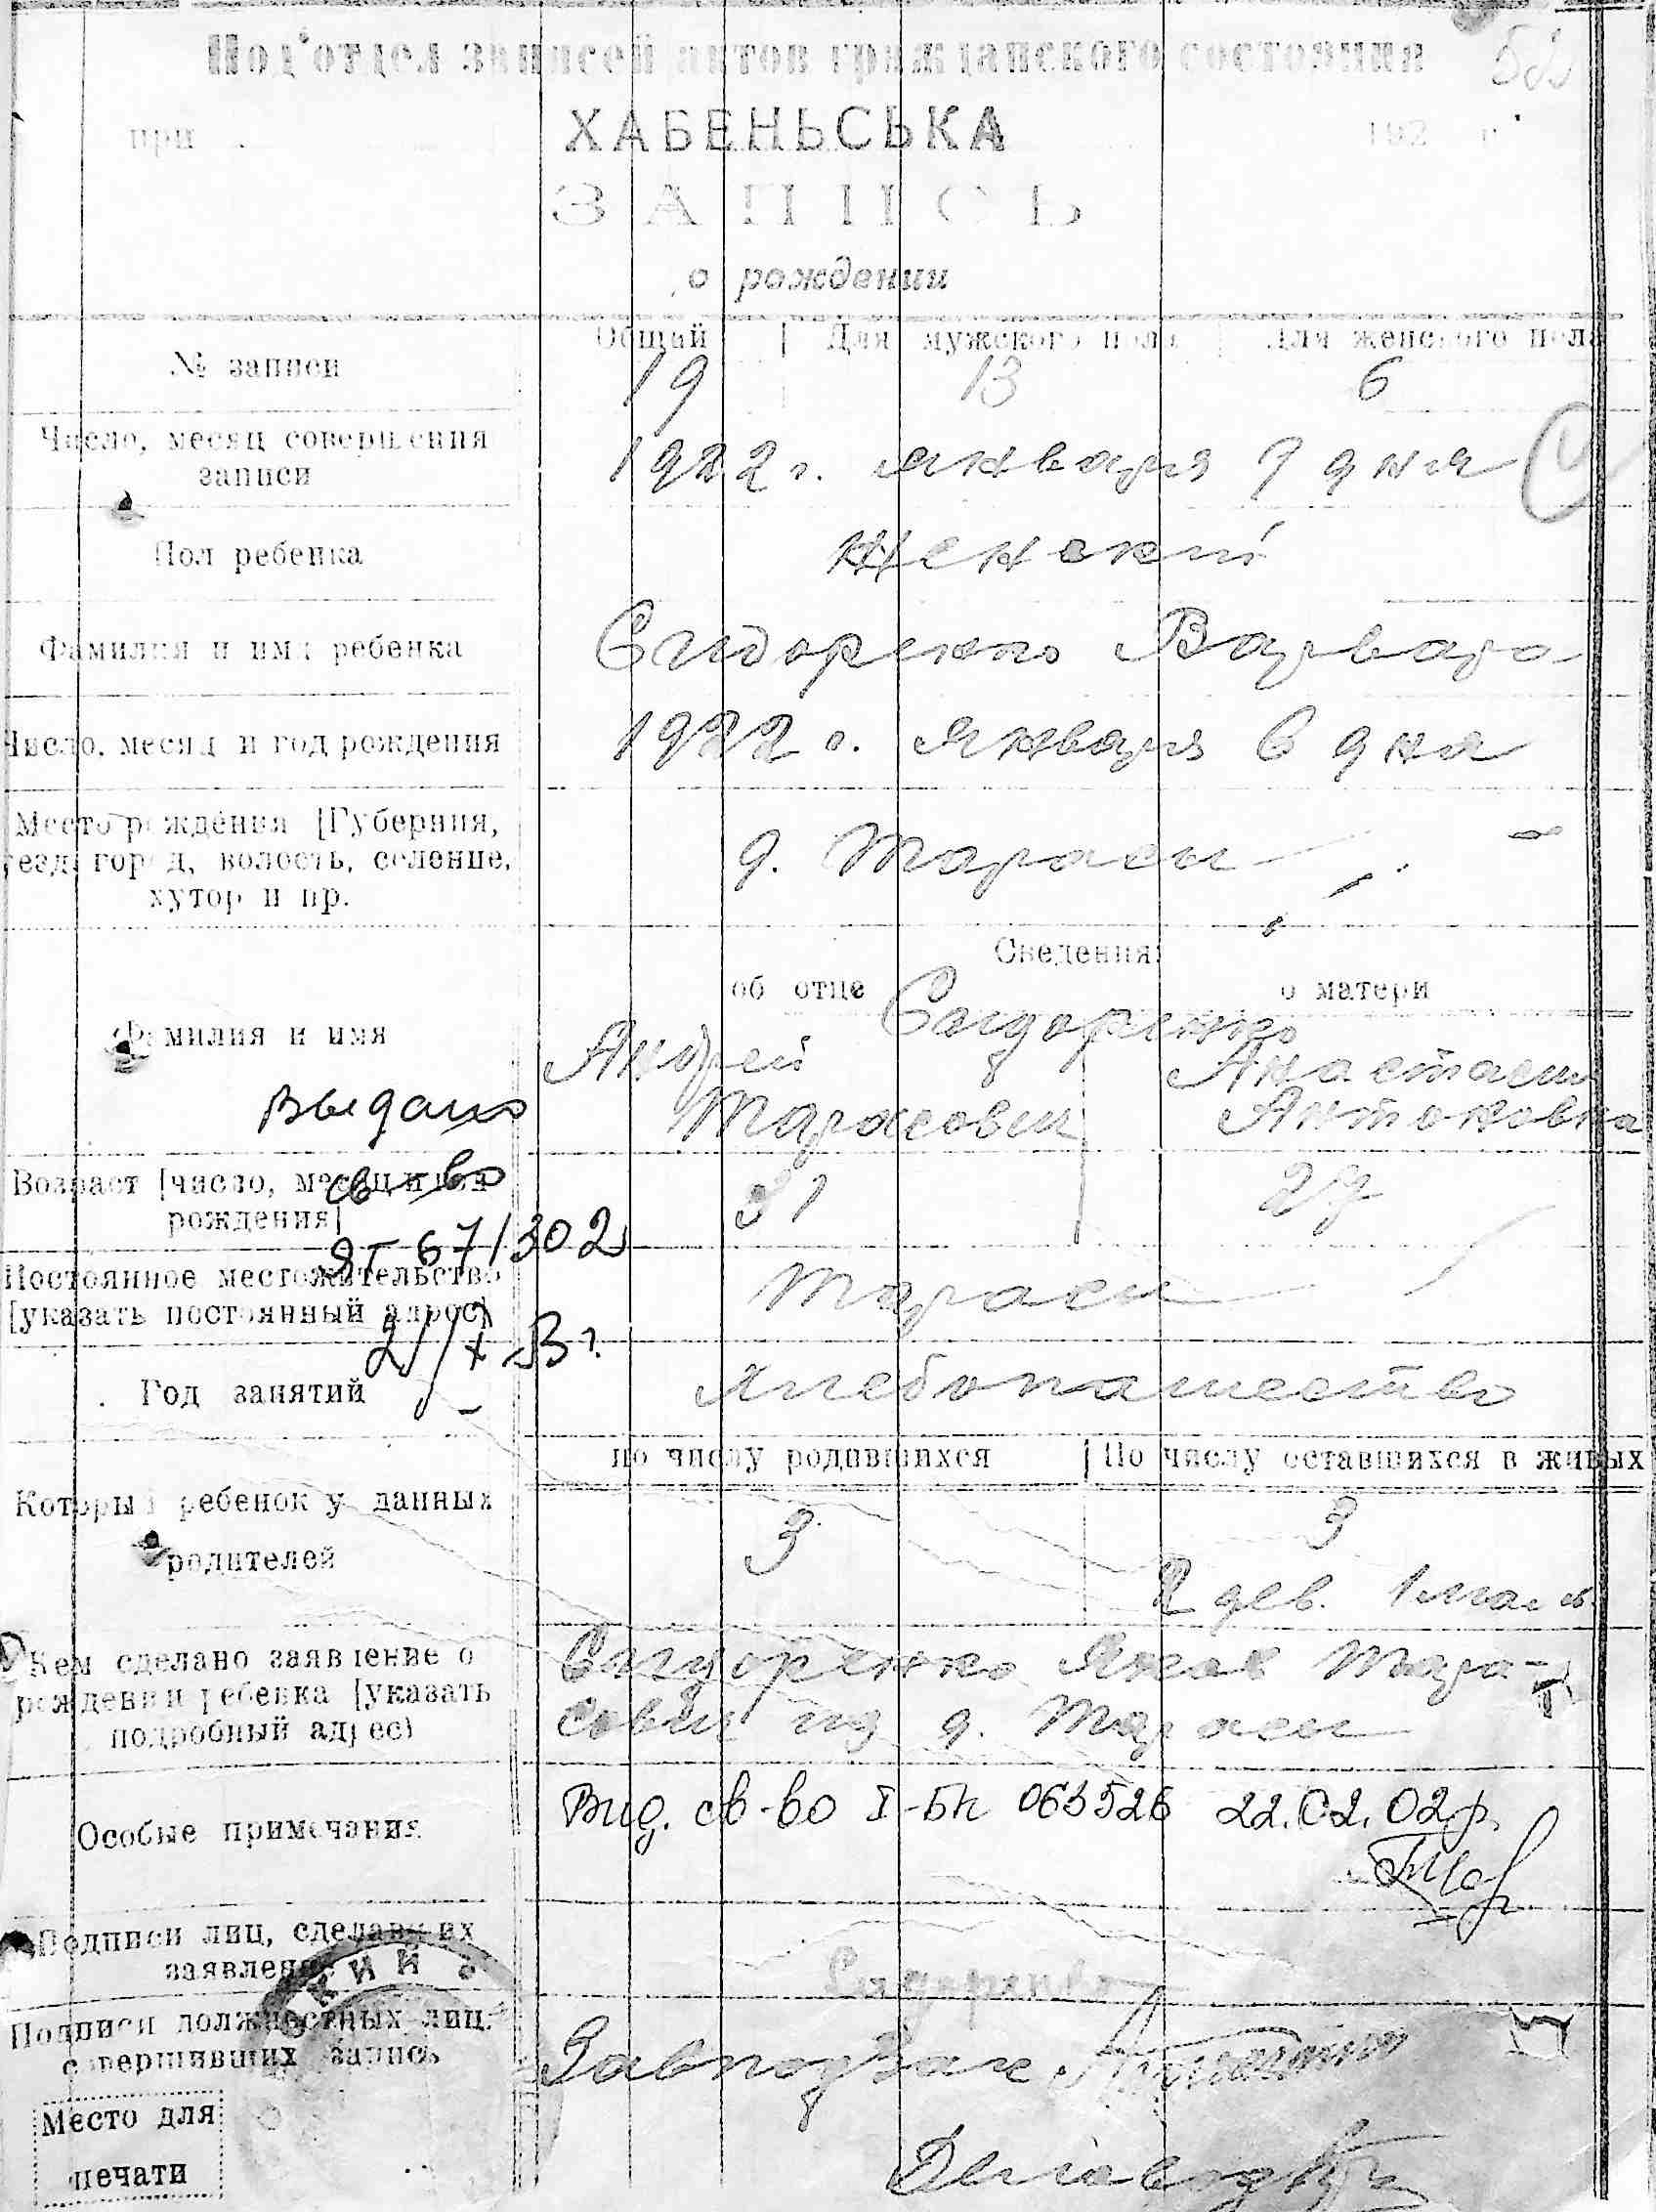 Под'отдел записей актов гражданского состояния 52
при ХАБЕНЬСЬКА 192 г.
ЗАПИСЬ
о рождении
№ записи
Общий Для мужского пола Для женского пола
19 13 6
Число, месяц совершения записи
1922 г. января 7 дня
Пол ребенка
женский
Фамилия и имя ребенка
Сидоренко Варвара
Число, месяц и год рождения
1922 г. января 6 дня
Место рождения [Губерния,
уезд, город, волость, селение,
хутор и пр.
д. Тарасы
Сведения:
об отце о матери
Фамилия и имя
Сидоренко
Андрей Анастасия
Тарасович Антоновна
Выдано
св-во
ЯТ 67/302
Возраст [число, месяц и год
рождения]
31 27
Постоянное местожительство
[указать постоянный адрес]
Тарасы
Год занятий
хлебопашество
по числу родившихся По числу оставшихся в живых
Который ребенок у данных
родителей
3 3
2 дев. 1 маль.
Кем сделано заявление о
рождении ребенка [указать
подробный адрес)
Сидоренко Яков Тара-
сович из д. Тарасы
Особые примечания
Вид. св-во I-БК 063526 22.02.02р.
Подписи лиц, сделавших
заявление
Сидоренко
Подписи должностных лиц,
совершивших запись
Завподзаг
Место для
печати